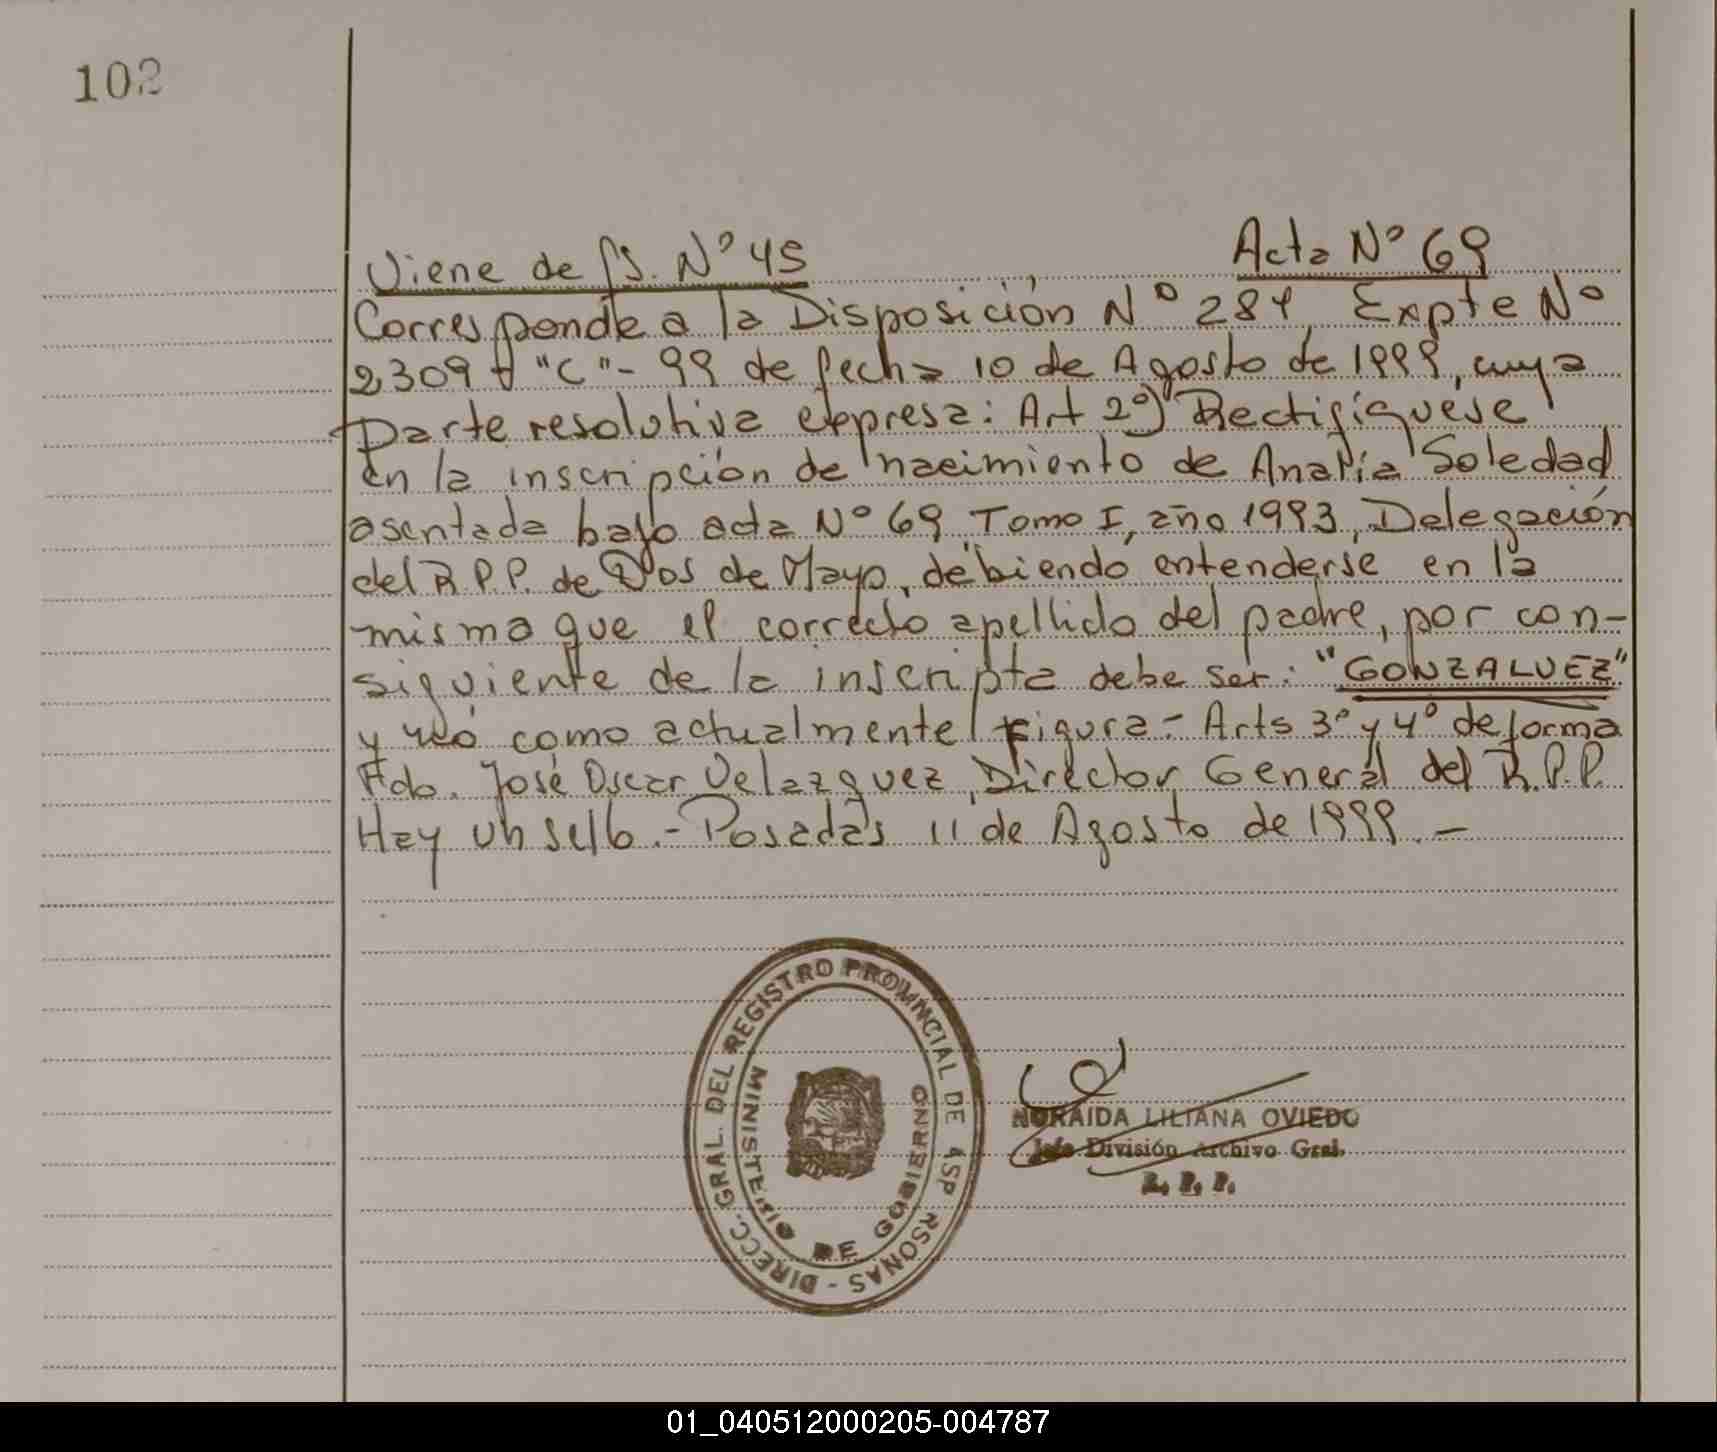 102
Viene de fs. Nº 45
Acta Nº 69
Corresponde a la Disposición Nº 284, Expte Nº
2309 "C" - 99 de fecha 10 de Agosto de 1999, cuya
Parte resolutiva expresa: Art 2º) Rectifíquese
en la inscripción de nacimiento de Analía Soledad
asentada bajo acta Nº 69 Tomo I, año 1993, Delegación
del R.P.P. de Dos de Mayo, debiendo entenderse en la
misma que el correcto apellido del padre, por con-
siguiente de la inscripta debe ser: "GONZALVEZ"
y no como actualmente figura - Arts 3º y 4º de forma
Fdo. José Oscar Velazquez, Director General del R.P.P.
Hay un sello. - Posadas 11 de Agosto de 1999. -
DIRECC. GRAL. DEL REGISTRO PROVINCIAL DE RSONAS -
MINISTERIO DE GOBIERNO
NORAIDA LILIANA OVIEDO
Jefe División Archivo Gral.
R. P. P.
01_040512000205-004787